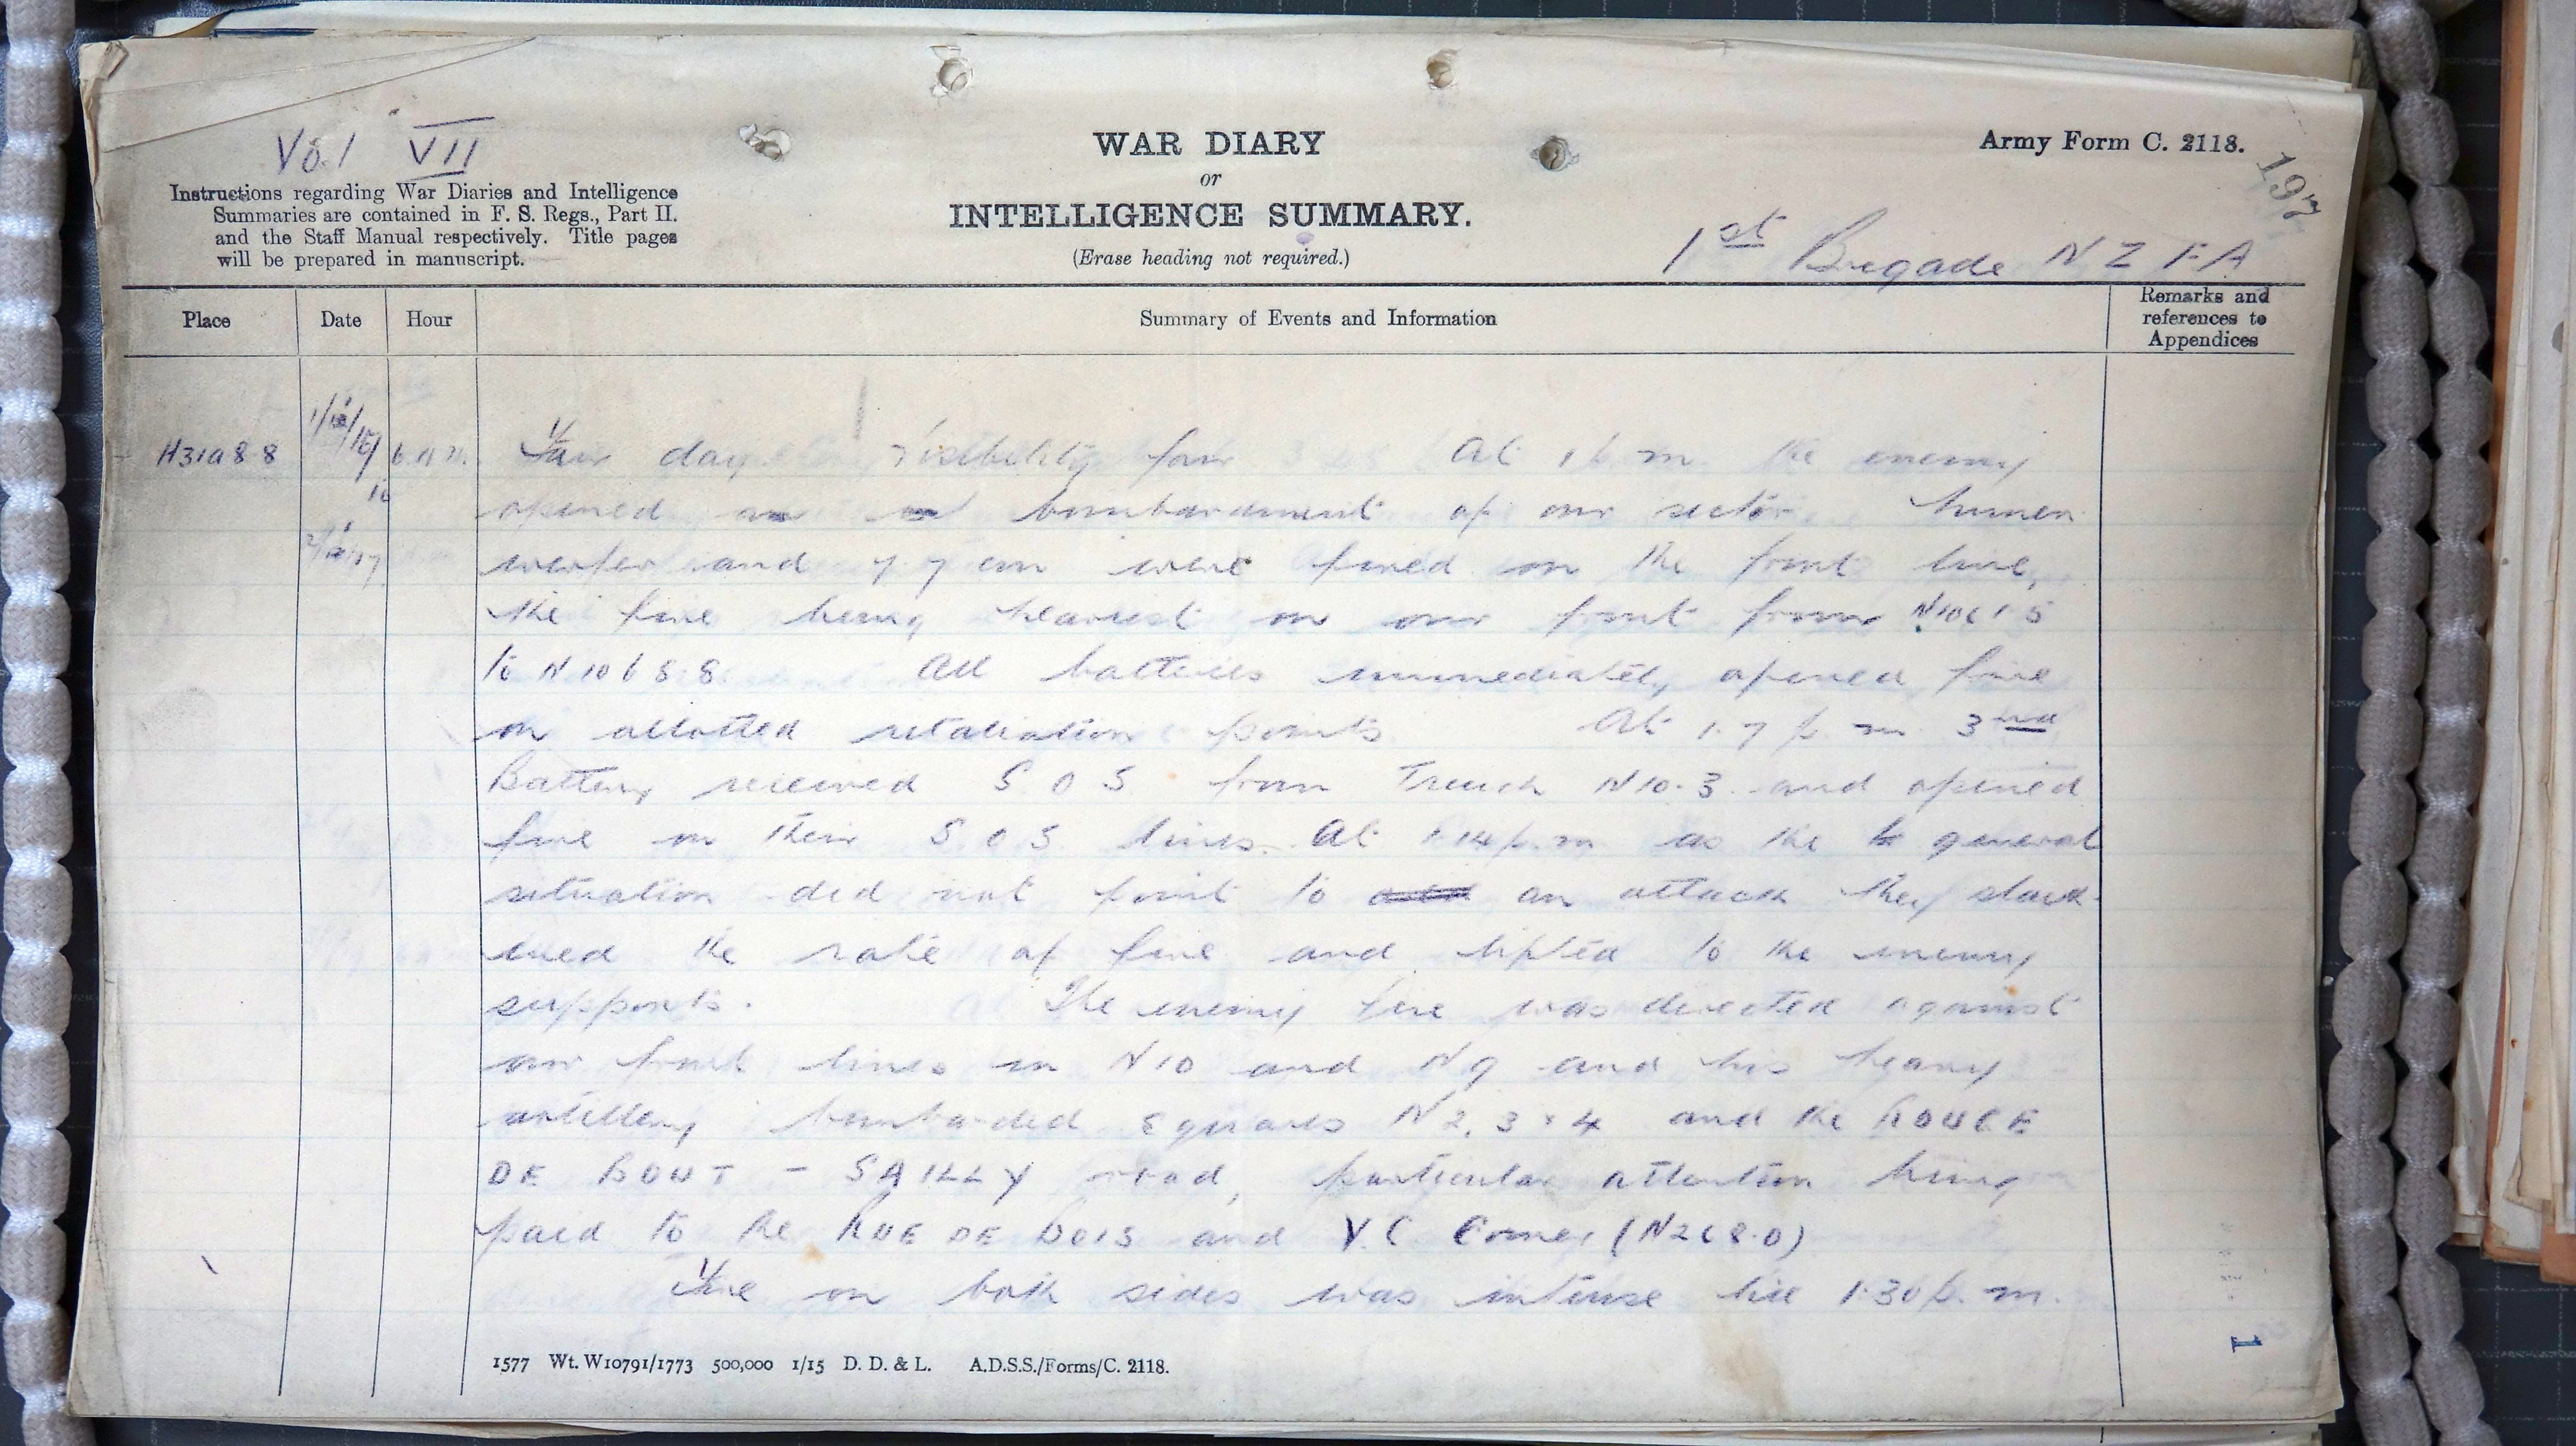 Vol VII
WAR DIARY
or
INTELLIGENCE SUMMARY.
(Erase heading not required.)
Army Form C. 2118.
197
Instructions regarding War Diaries and Intelligence
Summaries are contained in F. S. Regs., Part II.
and the Staff Manual respectively. Title pages
will be prepared in manuscript.
1st Brigade N Z F A
Place Date Hour Summary of Events and Information Remarks and references to Appendices
H31a 8 8 Fair day. Visibility fair At 1 p m the enemy
opened bombardment of our sector. Minnen
werfer and 7.7 cm were fired on the front line,
the fire being heaviest on our front from N10c 1.5
to N 10 b 8.8. All batteries immediately opened fire
on allotted retaliation points At 1.7 p. m. 3rd
Battery received S O S from Trench N10.3 and opened
fire on their S.O.S. lines. At 1.14 p.m as the general
situation did not point to an attack they slack-
ened the rate of fire and lifted to the enemy
supports. The enemy fire was directed against
our front lines in N10 and N9 and his heavy
artillery bombarded squares N2, 3 & 4 and the ROUGE
DE BOUT - SAILLY road, particular attention being
paid to the RUE DE BOIS and V.C Corner (N2c 8.0)
Fire on both sides was intense till 1.30 p. m.
1577 Wt. W10791/1773 500,000 1/15 D. D. & L. A.D.S.S./Forms/C. 2118.
1